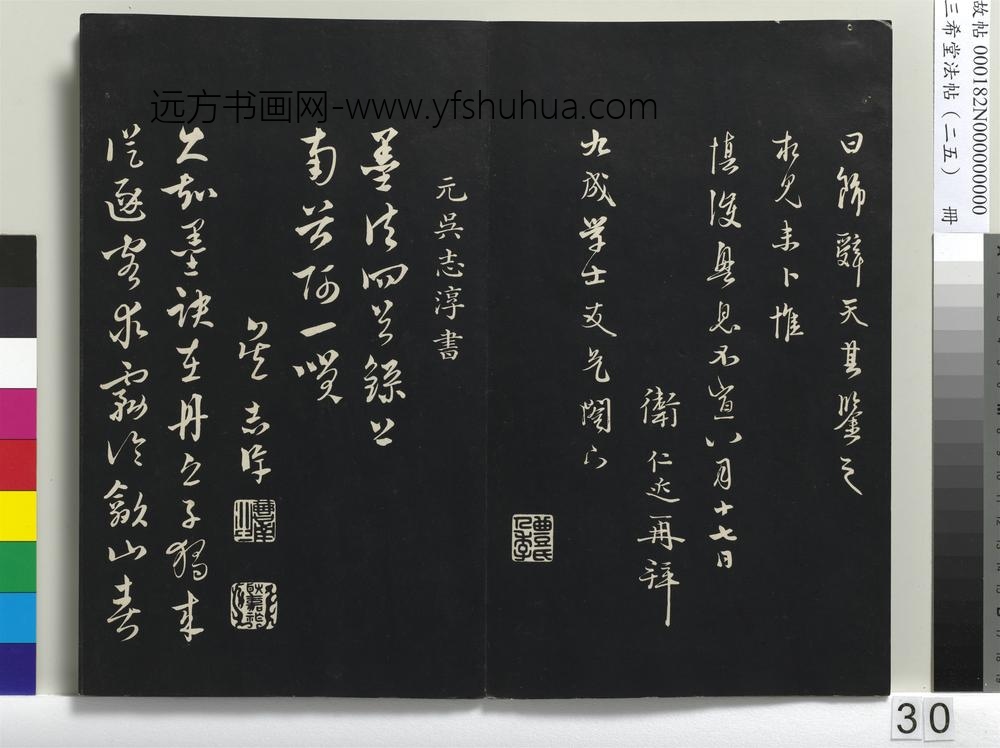 故帖 000182N000000000
三希堂法帖(二五) 冊
远方书画网-www.yfshuhua.com
日飾辭天其鑒之
求見未卜惟
慎護興息不宣八月十七日
衛仁近再拜
九成学士友兄閣下
元吳志淳書
墨法四首錄上
南谷師一噗
吳志淳
久知墨訣在丹丘子獨來
從逐客求霧冷歙山春
30